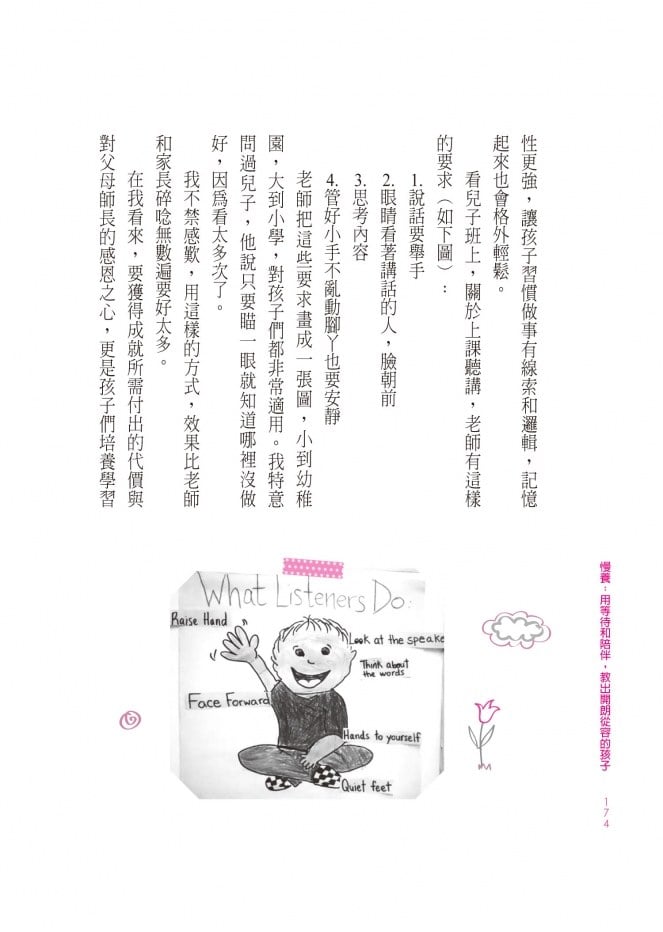 性更強，讓孩子習慣做事有線索和邏輯，記憶
起來也會格外輕鬆。
看兒子班上，關於上課聽講，老師有這樣
的要求（如下圖）：
1.說話要舉手
2.眼睛看著講話的人，臉朝前
3.思考內容
4.管好小手不亂動腳丫也要安靜
老師把這些要求畫成一張圖，小到幼稚
園，大到小學，對孩子們都非常適用。我特意
問過兒子，他說只要瞄一眼就知道哪裡沒做
好，因爲看太多次了。
我不禁感歎，用這樣的方式，效果比老師
和家長碎唸無數遍要好太多。
在我看來，要獲得成就所需付出的代價與
對父母師長的感恩之心，更是孩子們培養學習
What Listeners Do:
Raise Hand
Look at the speake
Think about
the words
Face Forward
Hands to yourself
Quiet feet
慢養：用等待和陪伴，教出開朗從容的孩子
174